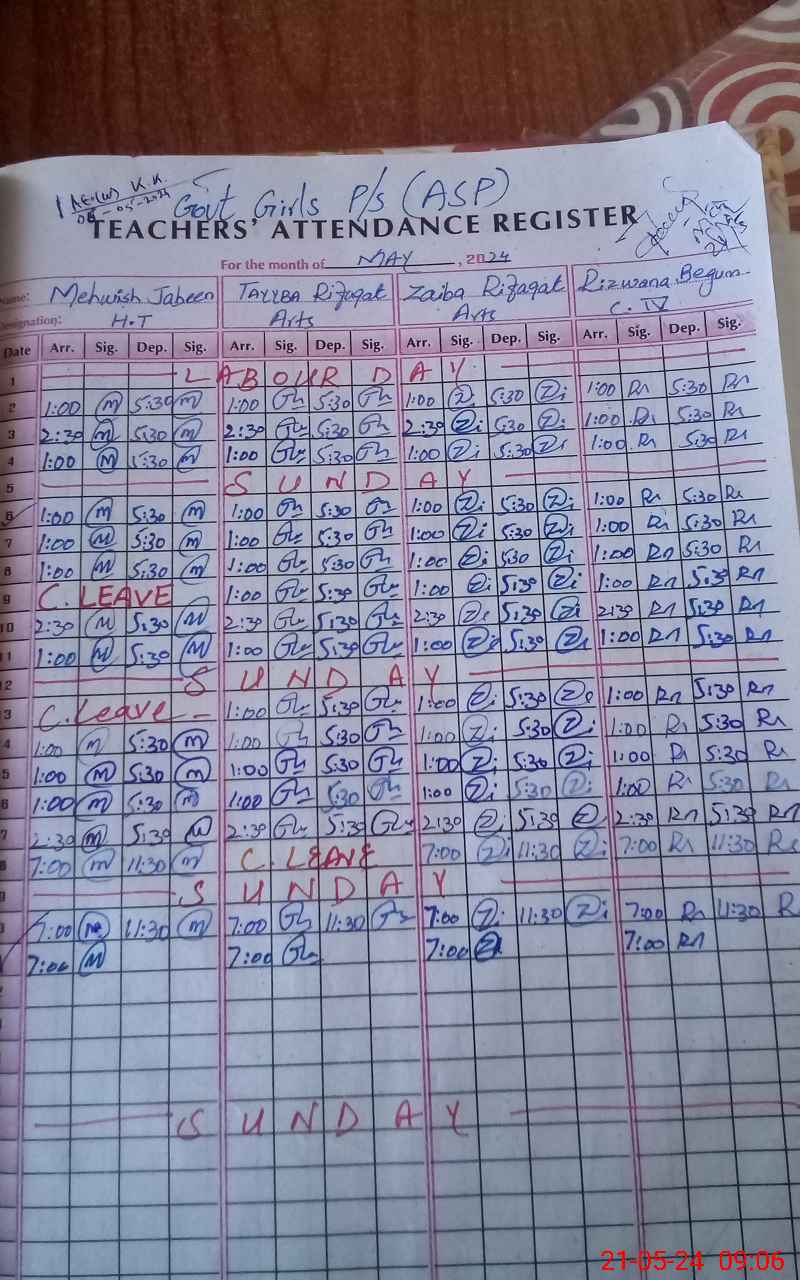 AEO(W) K.K.
06-05-2024
Govt Girls P/s (ASP)
TEACHERS' ATTENDANCE REGISTER
For the month of MAY, 2024
Name: Mehwish Jabeen TAYYBA Rifaqat Zaiba Rifaqat Rizwana Begum
Designation: H.T Arts Arts C. IV
Date Arr. Sig. Dep. Sig. Arr. Sig. Dep. Sig. Arr. Sig. Dep. Sig. Arr. Sig. Dep. Sig.
1 LABOUR DAY
2 1:00 m 5:30 m 1:00 5:30 1:00 Zi 5:30 Zi 1:00 Rn 5:30 Rn
3 2:30 m 5:30 m 2:30 5:30 2:30 Zi 5:30 Zi 1:00 Rn 5:30 Rn
4 1:00 m 5:30 m 1:00 5:30 1:00 Zi 5:30 Zi 1:00 Rn 5:30 Rn
5 SUNDAY
6 1:00 m 5:30 m 1:00 5:30 1:00 Zi 5:30 Zi 1:00 Rn 5:30 Rn
7 1:00 m 5:30 m 1:00 5:30 1:00 Zi 5:30 Zi 1:00 Rn 5:30 Rn
8 1:00 m 5:30 m 1:00 5:30 1:00 Zi 5:30 Zi 1:00 Rn 5:30 Rn
9 C. LEAVE 1:00 5:30 1:00 Zi 5:30 Zi 1:00 Rn 5:30 Rn
10 2:30 m 5:30 m 2:30 5:30 2:30 Zi 5:30 Zi 2:30 Rn 5:30 Rn
11 1:00 m 5:30 m 1:00 5:30 1:00 Zi 5:30 Zi 1:00 Rn 5:30 Rn
12 SUNDAY
3 C. Leave 1:00 5:30 1:00 Zi 5:30 Zi 1:00 Rn 5:30 Rn
4 1:00 m 5:30 m 1:00 5:30 1:00 Zi 5:30 Zi 1:00 Rn 5:30 Rn
5 1:00 m 5:30 m 1:00 5:30 1:00 Zi 5:30 Zi 1:00 Rn 5:30 Rn
6 1:00 m 5:30 m 1:00 5:30 1:00 Zi 5:30 Zi 1:00 Rn 5:30 Rn
7 2:30 m 5:30 m 2:30 5:30 2:30 Zi 5:30 Zi 2:30 Rn 5:30 Rn
8 7:00 m 11:30 m C. LEAVE 7:00 Zi 11:30 Zi 7:00 Rn 11:30 Rn
SUNDAY
7:00 m 11:30 m 7:00 11:30 7:00 Zi 11:30 Zi 7:00 Rn 11:30 R
7:00 m 7:00 7:00 Zi 7:00 Rn
SUNDAY
21-05-24 09:06